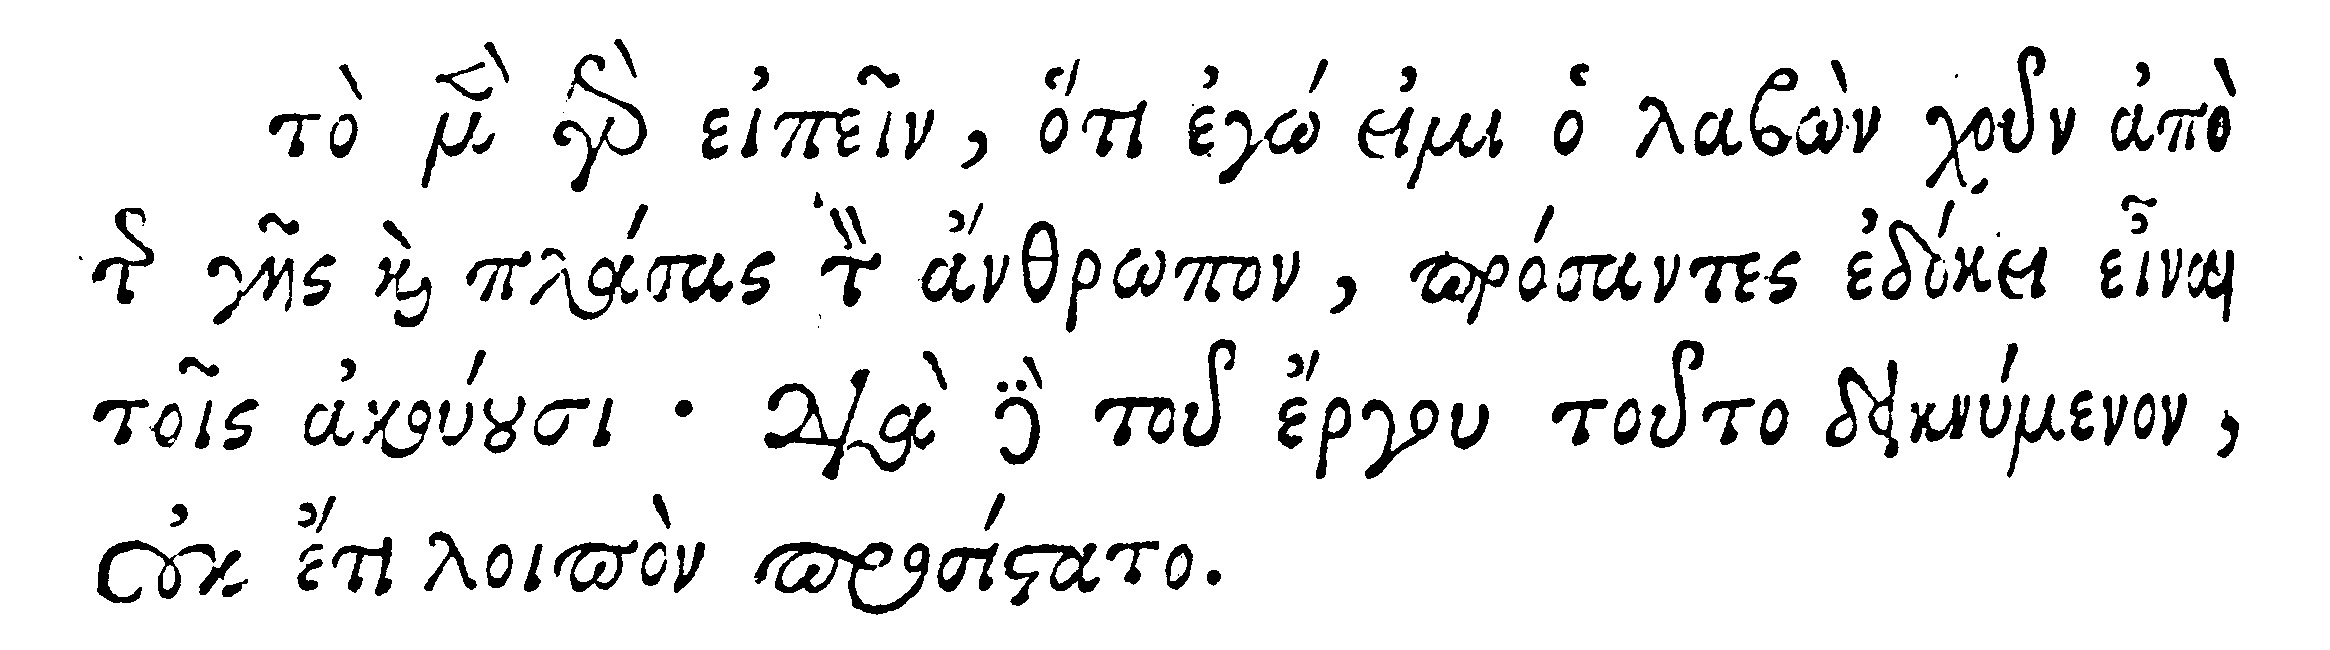 τὸ μὲν γὰρ εἰπεῖν, ὅτι ἐγώ εἰμι ὁ λαβὼν χοῦν ἀπὸ
τῆς γῆς καὶ πλάσας τὸν ἄνθρωπον, πρόσαντες ἐδόκει εἶναι
τοῖς ἀκούουσι · διὰ δὲ τοῦ ἔργου τοῦτο δεικνύμενον,
οὐκ ἔτι λοιπὸν προσίστατο.